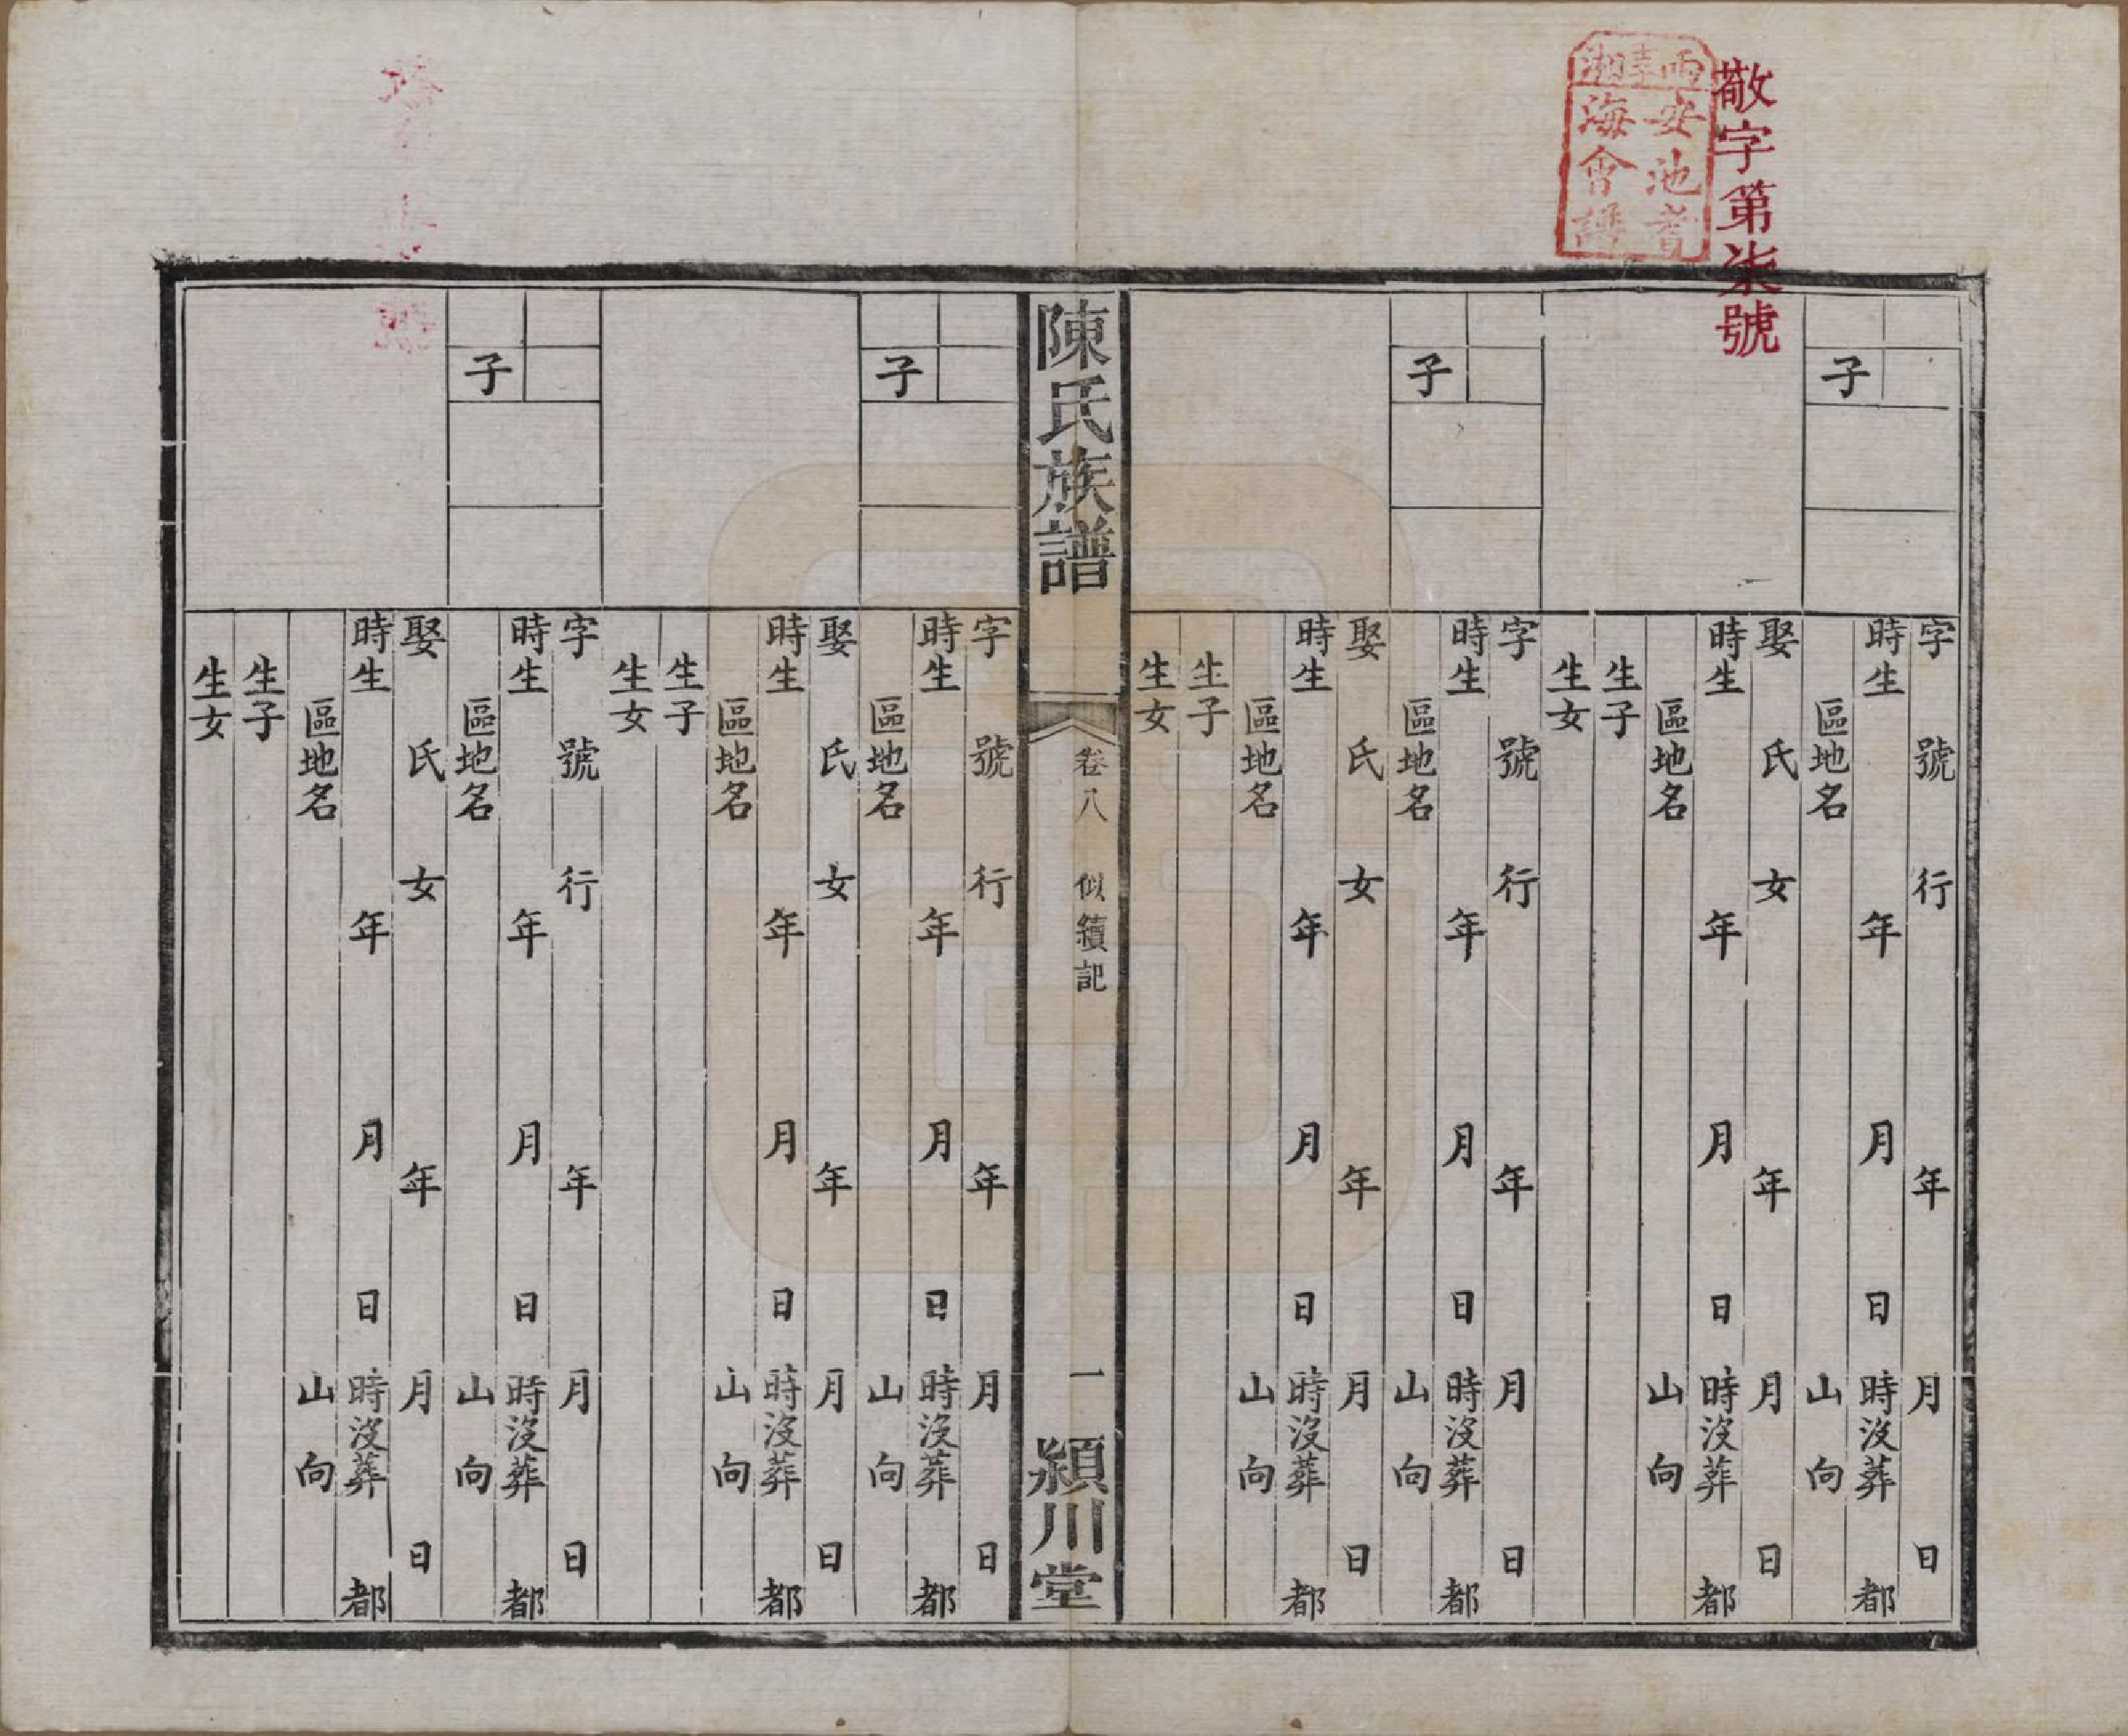 敬字第柒號
安池耆
海會譜
子
字 號 行 年 月 日
時生 年 月 日 時沒葬 都
區地名 山 向
娶 氏 女 年 月 日
時生 年 月 日 時沒葬 都
區地名 山 向
生子
生女
子
字 號 行 年 月 日
時生 年 月 日 時沒葬 都
區地名 山 向
娶 氏 女 年 月 日
時生 年 月 日 時沒葬 都
區地名 山 向
生子
生女
陳氏族譜 卷八 似續記 一 潁川堂
子
字 號 行 年 月 日
時生 年 月 日 時沒葬 都
區地名 山 向
娶 氏 女 年 月 日
時生 年 月 日 時沒葬 都
區地名 山 向
生子
生女
子
字 號 行 年 月 日
時生 年 月 日 時沒葬 都
區地名 山 向
娶 氏 女 年 月 日
時生 年 月 日 時沒葬 都
區地名 山 向
生子
生女